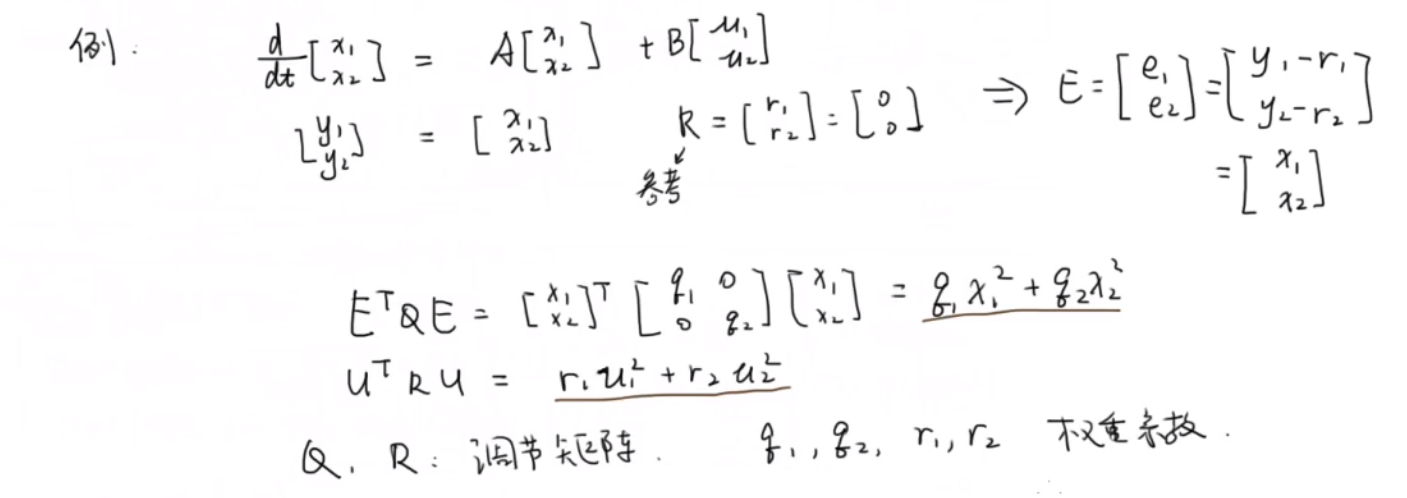 例：d/dt [x₁ x₂] = A[x₁ x₂] + B[u₁ u₂]
[y₁ y₂] = [x₁ x₂] R = [r₁ r₂] = [0 0] ⇒ E = [e₁ e₂] = [y₁-r₁ y₂-r₂]
参考 = [x₁ x₂]
EᵀQE = [x₁ x₂]ᵀ [q₁ 0 0 q₂] [x₁ x₂] = q₁x₁² + q₂x₂²
uᵀRu = r₁u₁² + r₂u₂²
Q, R: 调节矩阵. q₁, q₂, r₁, r₂ 权重系数.